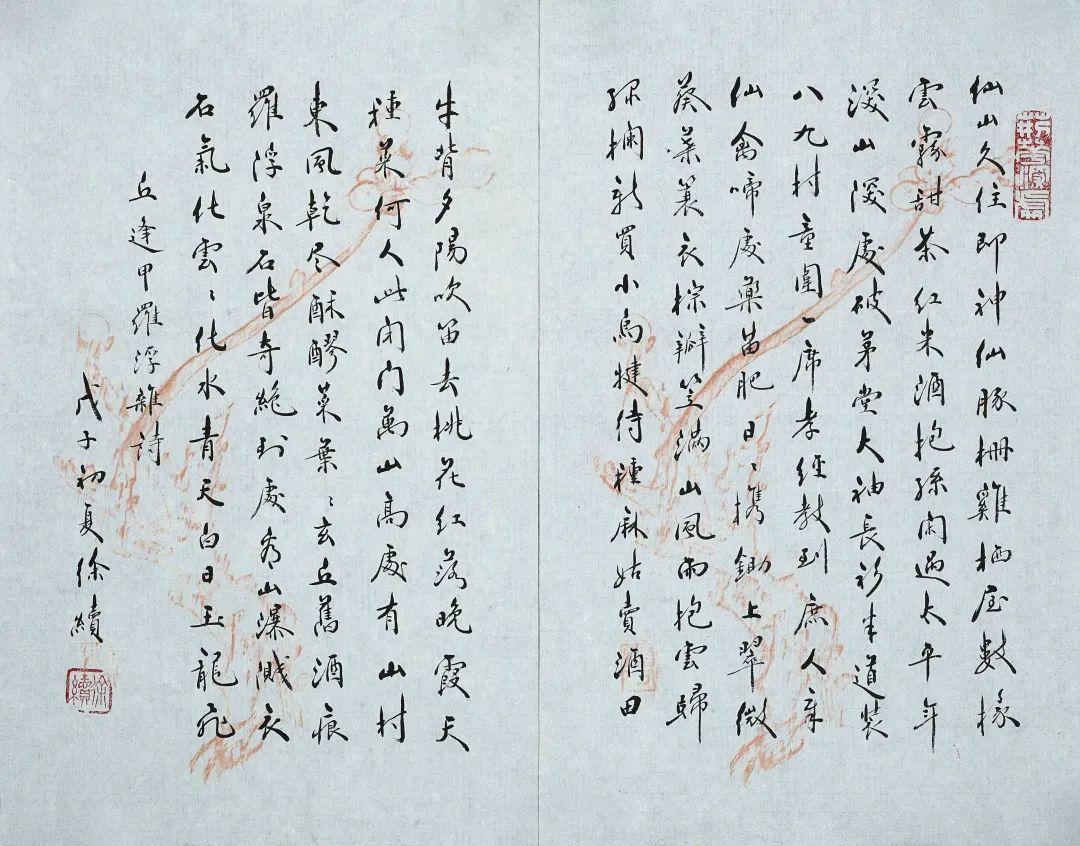 仙山久住即神仙豚柵雞栖屋數椽
雲霧甜茶紅米酒抱孫閑過太平年
深山深處破茅堂大袖長衫半道裝
八九村童圍一席孝經教到庶人章
仙禽啼處藥苗肥日〻携鋤上翠微
葵葉蓑衣棕瓣笠滿山風雨抱雲歸
綠欄新買小烏犍待種麻姑賣酒田
牛背夕陽吹笛去桃花紅落晚霞天
種菜何人此閉門萬山高處有山村
東風乾尽酥醪菜葉〻玄丘舊酒痕
羅浮泉石皆奇絶到處看山瀑濺衣
石氣化雲〻化水青天白日玉龍飛
丘逢甲羅浮雜詩
戊子初夏徐續
徐續